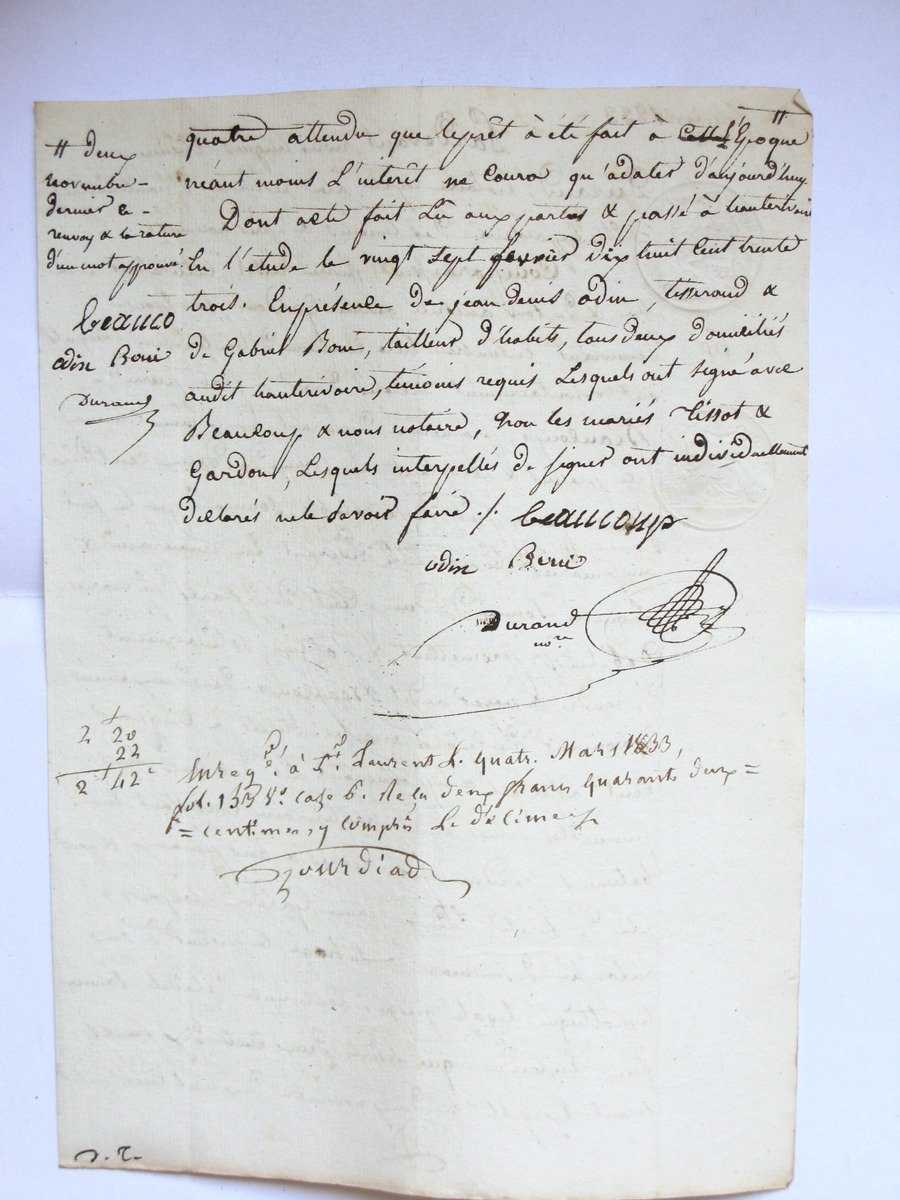 quatre attendu que leprêt à été fait à Cette l'Epoque //
néant moins L'interêt ne Coura qu'adater d'aujourd'huy
Dont acte fait Lu aux parties & passé à hauterivoire
En l'etude le vingt sept fevrier dix huit Cent trente
trois. Enprésence de jean denis odin, tisserand &
de Gabriel Boni, tailleur d'habits, tous deux domiciliés
audit hauterivoire, témoins requis Lesquels ont signé avec
Beaucoup & nous notaire, Non les mariés tissot &
Gardon, Lesquels interpellés de signer ont individuellement
déclarés ne le savoir faire ./. beaucoup
odin Boni
Durand
nore
// deux
novembre -
dernier le -
renvoy & la rature
d'un mot approuvé.
beauco
odin Boni
Durand
2 f 20
22
2 f 42 c
Enregé. à St. Laurent Le quatr. Mars 1833,
fol. 133 Vo. case 6. Reçu deux francs quarante deux =
= centimes, y compris Le décime
Jourdiad